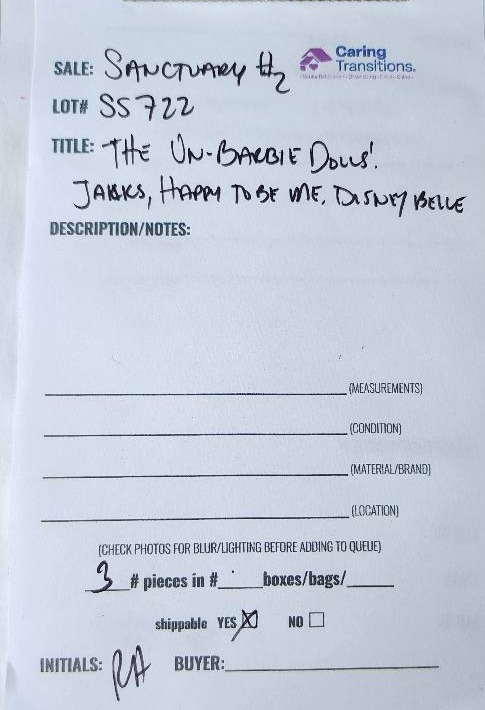 SALE: SANCTUARY #2
Caring
Transitions.
LOT# SS722
TITLE: THE UN-BARBIE DOLLS!
HAPPY TO BE ME, DISNEY BELLE
DESCRIPTION/NOTES:
(MEASUREMENTS)
(CONDITION)
(MATERIAL/BRAND)
(LOCATION)
(CHECK PHOTOS FOR BLUR/LIGHTING BEFORE ADDING TO QUEUE)
3 # pieces in # boxes/bags/
shippable YES NO
INITIALS: RA BUYER: